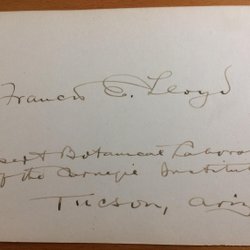 Francis E. Lloyd
sert Botanical Labora
of the Carnegie Institut
Tucson, Ariz